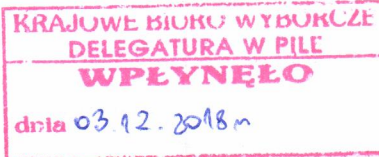 KRAJOWE BIURO WYBORCZE
DELEGATURA W PILE
WPŁYNĘŁO
dnia 03.12.2018 r